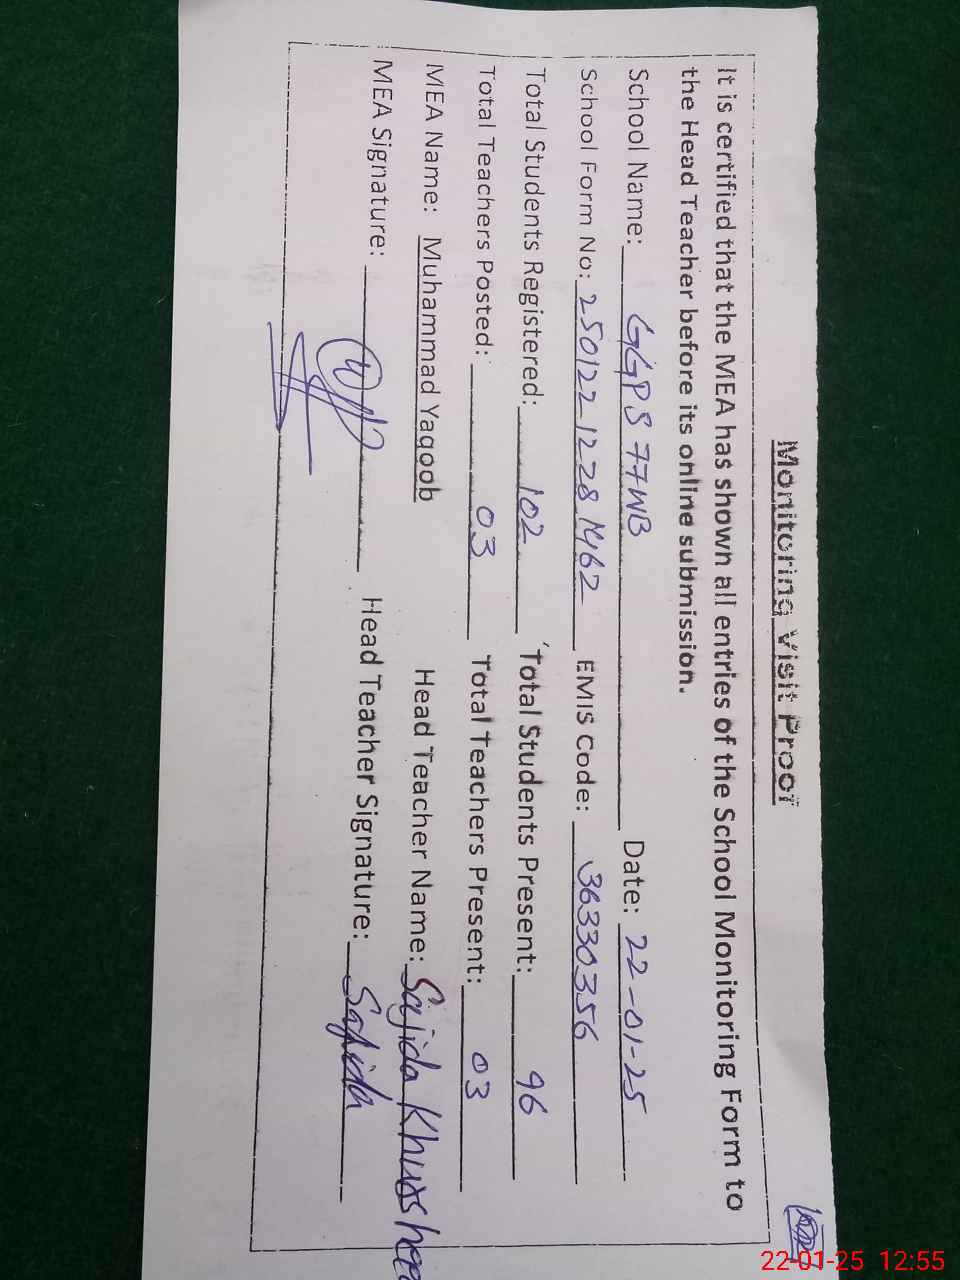 Monitoring Visit Proof
It is certified that the MEA has shown all entries of the School Monitoring Form to
the Head Teacher before its online submission.
School Name: GGPS 77WB Date: 22-01-25
School Form No: 250122 1228 1462 EMIS Code: 36330356
Total Students Registered: 102 Total Students Present: 96
Total Teachers Posted: 03 Total Teachers Present: 03
MEA Name: Muhammad Yaqoob Head Teacher Name: Sajida Khurshee
MEA Signature: Head Teacher Signature: Sajida
22-01-25 12:55